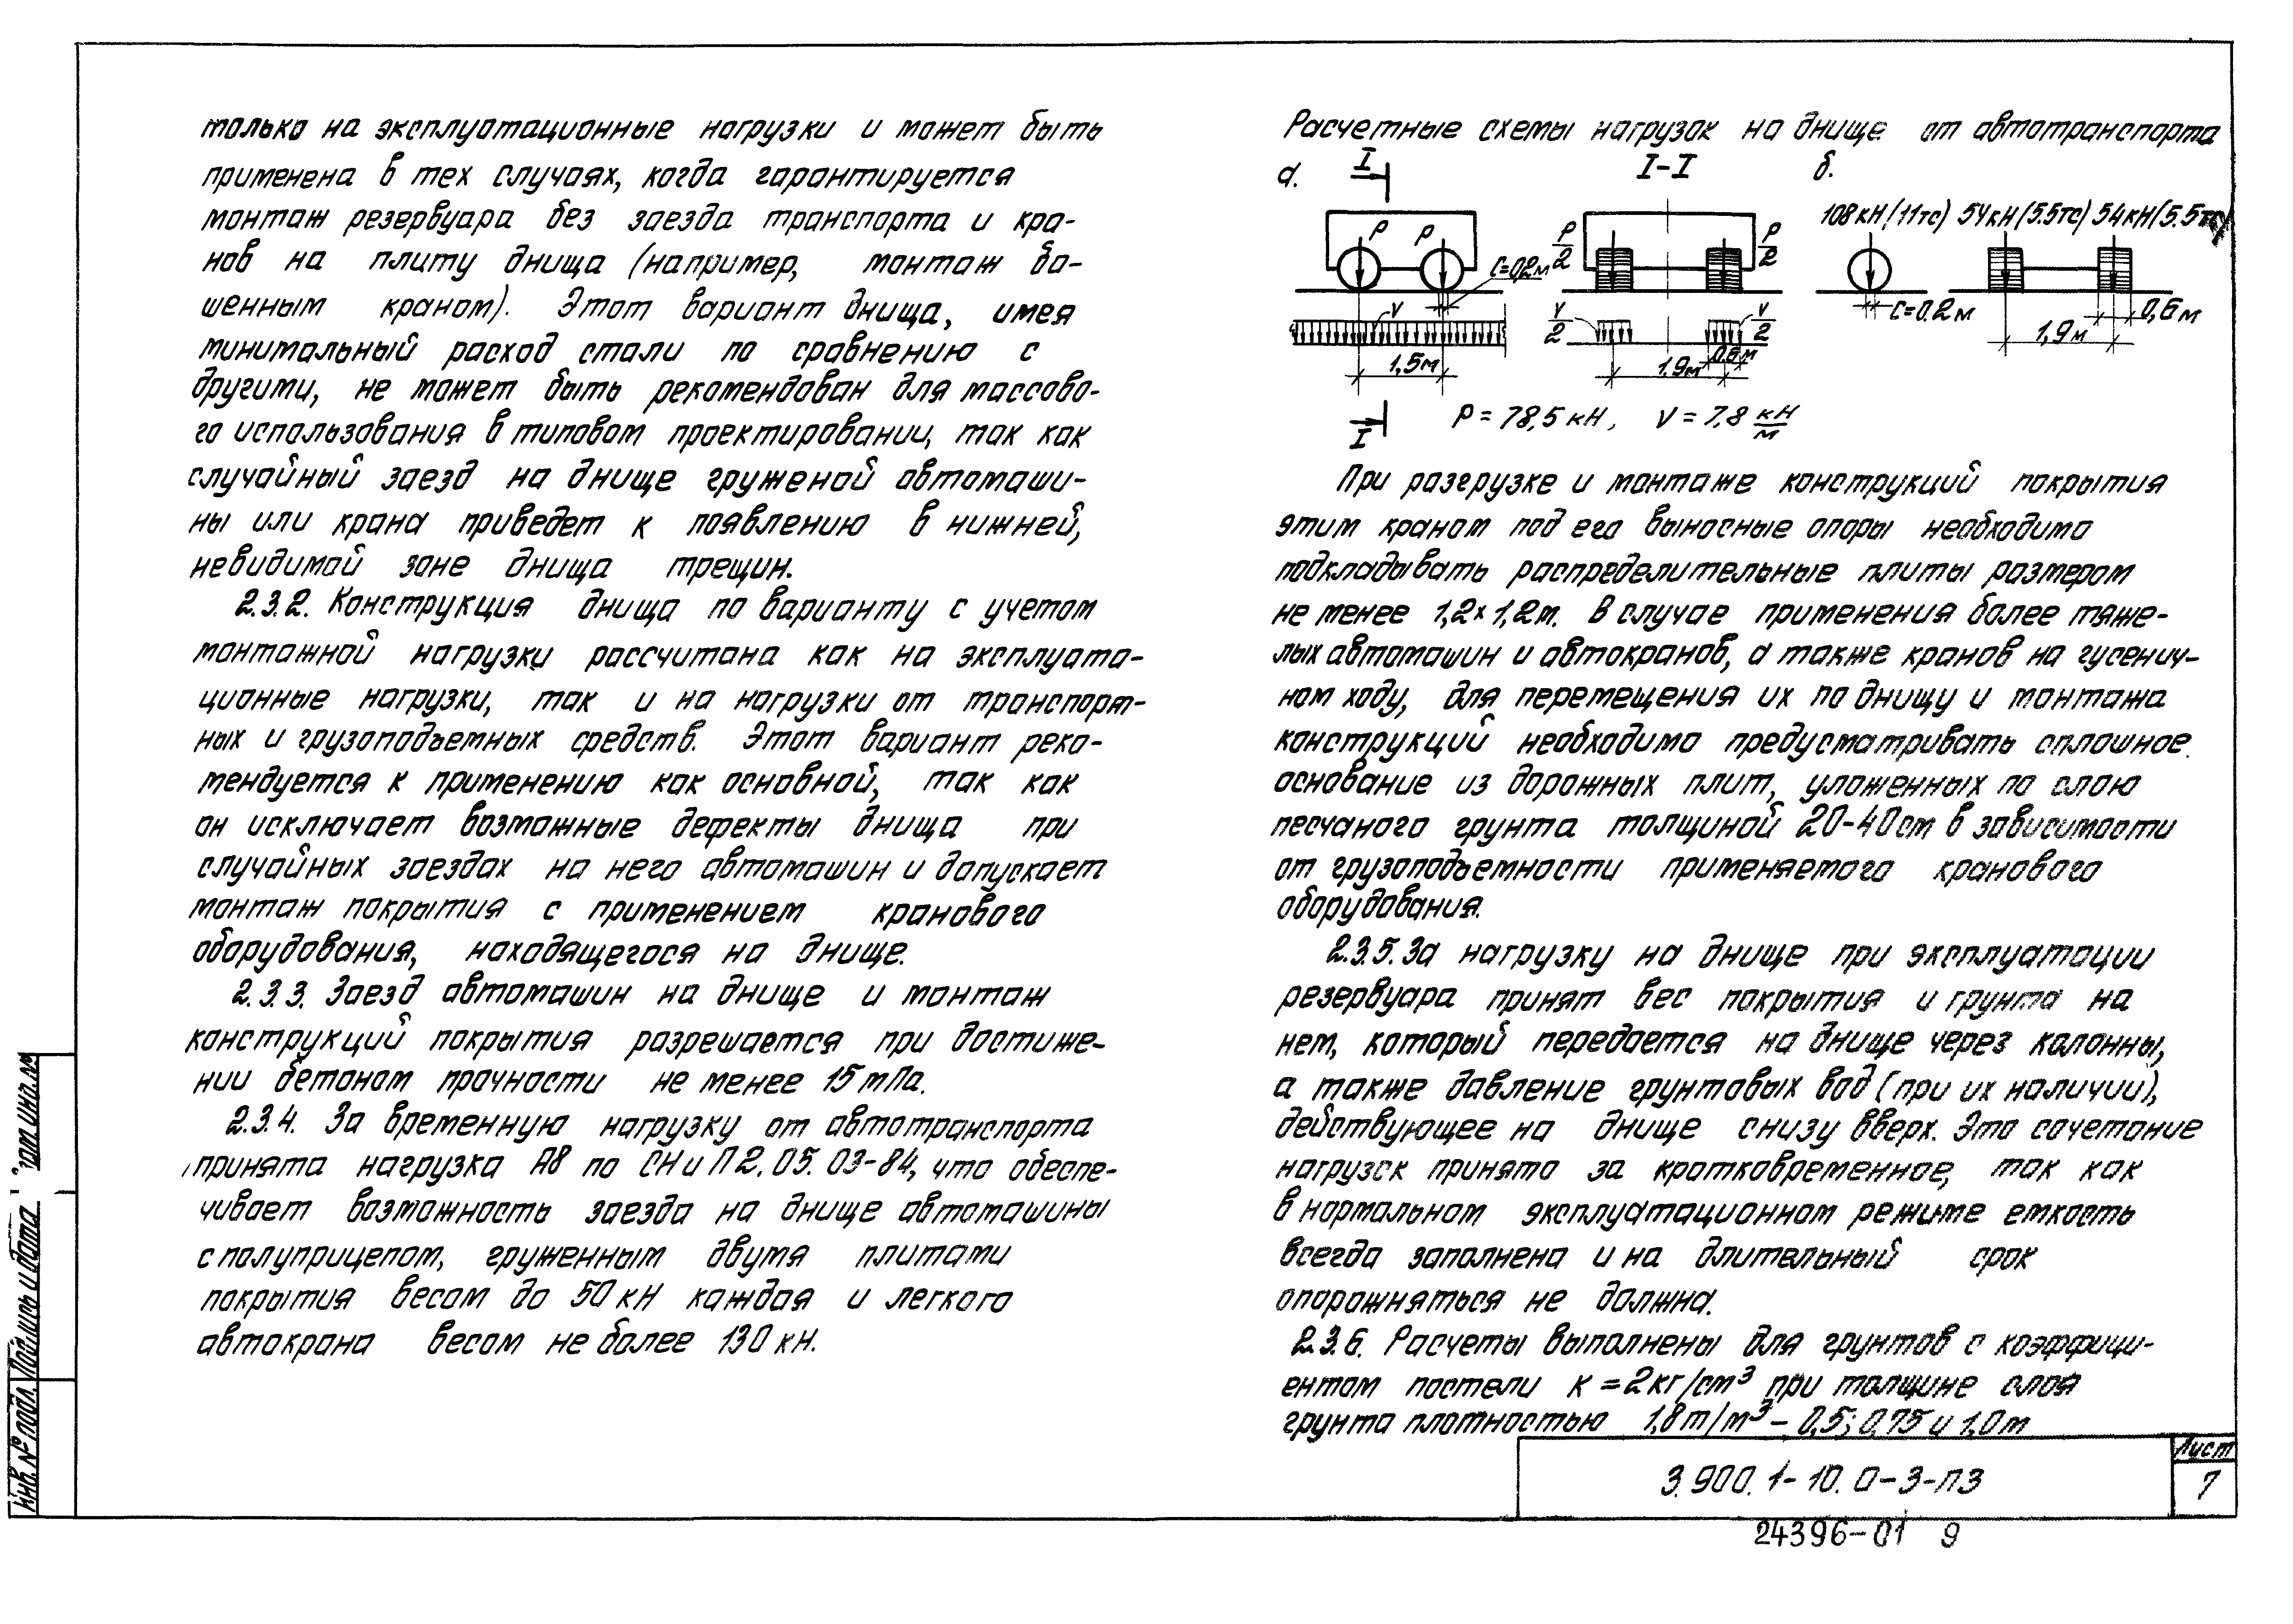 только на эксплуатационные нагрузки и может быть
применена в тех случаях, когда гарантируется
монтаж резервуара без заезда транспорта и кра-
нов на плиту днища (например, монтаж ба-
шенным краном). Этот вариант днища, имея
минимальный расход стали по сравнению с
другими, не может быть рекомендован для массово-
го использования в типовом проектировании, так как
случайный заезд на днище груженой автомаши-
ны или крана приведет к появлению в нижней,
невидимой зоне днища трещин.
2.3.2. Конструкция днища по варианту с учетом
монтажной нагрузки рассчитана как на эксплуата-
ционные нагрузки, так и на нагрузки от транспорт-
ных и грузоподъемных средств. Этот вариант реко-
мендуется к применению как основной, так как
он исключает возможные дефекты днища при
случайных заездах на него автомашин и допускает
монтаж покрытия с применением кранового
оборудования, находящегося на днище.
2.3.3. Заезд автомашин на днище и монтаж
конструкций покрытия разрешается при достиже-
нии бетоном прочности не менее 15 мПа.
2.3.4. За временную нагрузку от автотранспорта
принята нагрузка А8 по СНиП 2.05.03-84, что обеспе-
чивает возможность заезда на днище автомашины
с полуприцепом, груженным двумя плитами
покрытия весом до 50 кН каждая и легкого
автокрана весом не более 130 кН.
Расчетные схемы нагрузок на днище от автотранспорта
а. I I-I б.
108 кН (11тс) 54 кН (5.5тс) 54 кН (5.5тс)
P P P/2 P/2
C=0,2м
V V/2 V/2
C=0.2м 0,6м
1,5м 1.9м 0.6м 1,9м
I P = 78,5 кН, V = 7,8 кН/м
При разгрузке и монтаже конструкций покрытия
этим краном под его выносные опоры необходимо
подкладывать распределительные плиты размером
не менее 1,2×1,2м. В случае применения более тяже-
лых автомашин и автокранов, а также кранов на гусенич-
ном ходу, для перемещения их по днищу и монтажа
конструкций необходимо предусматривать сплошное
основание из дорожных плит, уложенных по слою
песчаного грунта толщиной 20-40см в зависимости
от грузоподъемности применяемого кранового
оборудования.
2.3.5. За нагрузку на днище при эксплуатации
резервуара принят вес покрытия и грунта на
нем, который передается на днище через колонны,
а также давление грунтовых вод (при их наличии),
действующее на днище снизу вверх. Это сочетание
нагрузок принято за кратковременное, так как
в нормальном эксплуатационном режиме емкость
всегда заполнена и на длительный срок
опорожняться не должна.
2.3.6. Расчеты выполнены для грунтов с коэффици-
ентом постели к = 2кг/см³ при толщине слоя
грунта плотностью 1,8т/м³ – 0,5; 0,75 и 1,0м
3.900.1-10.0-3-ПЗ
Лист
7
24396-01 9
Инв. № подл. Подпись и дата